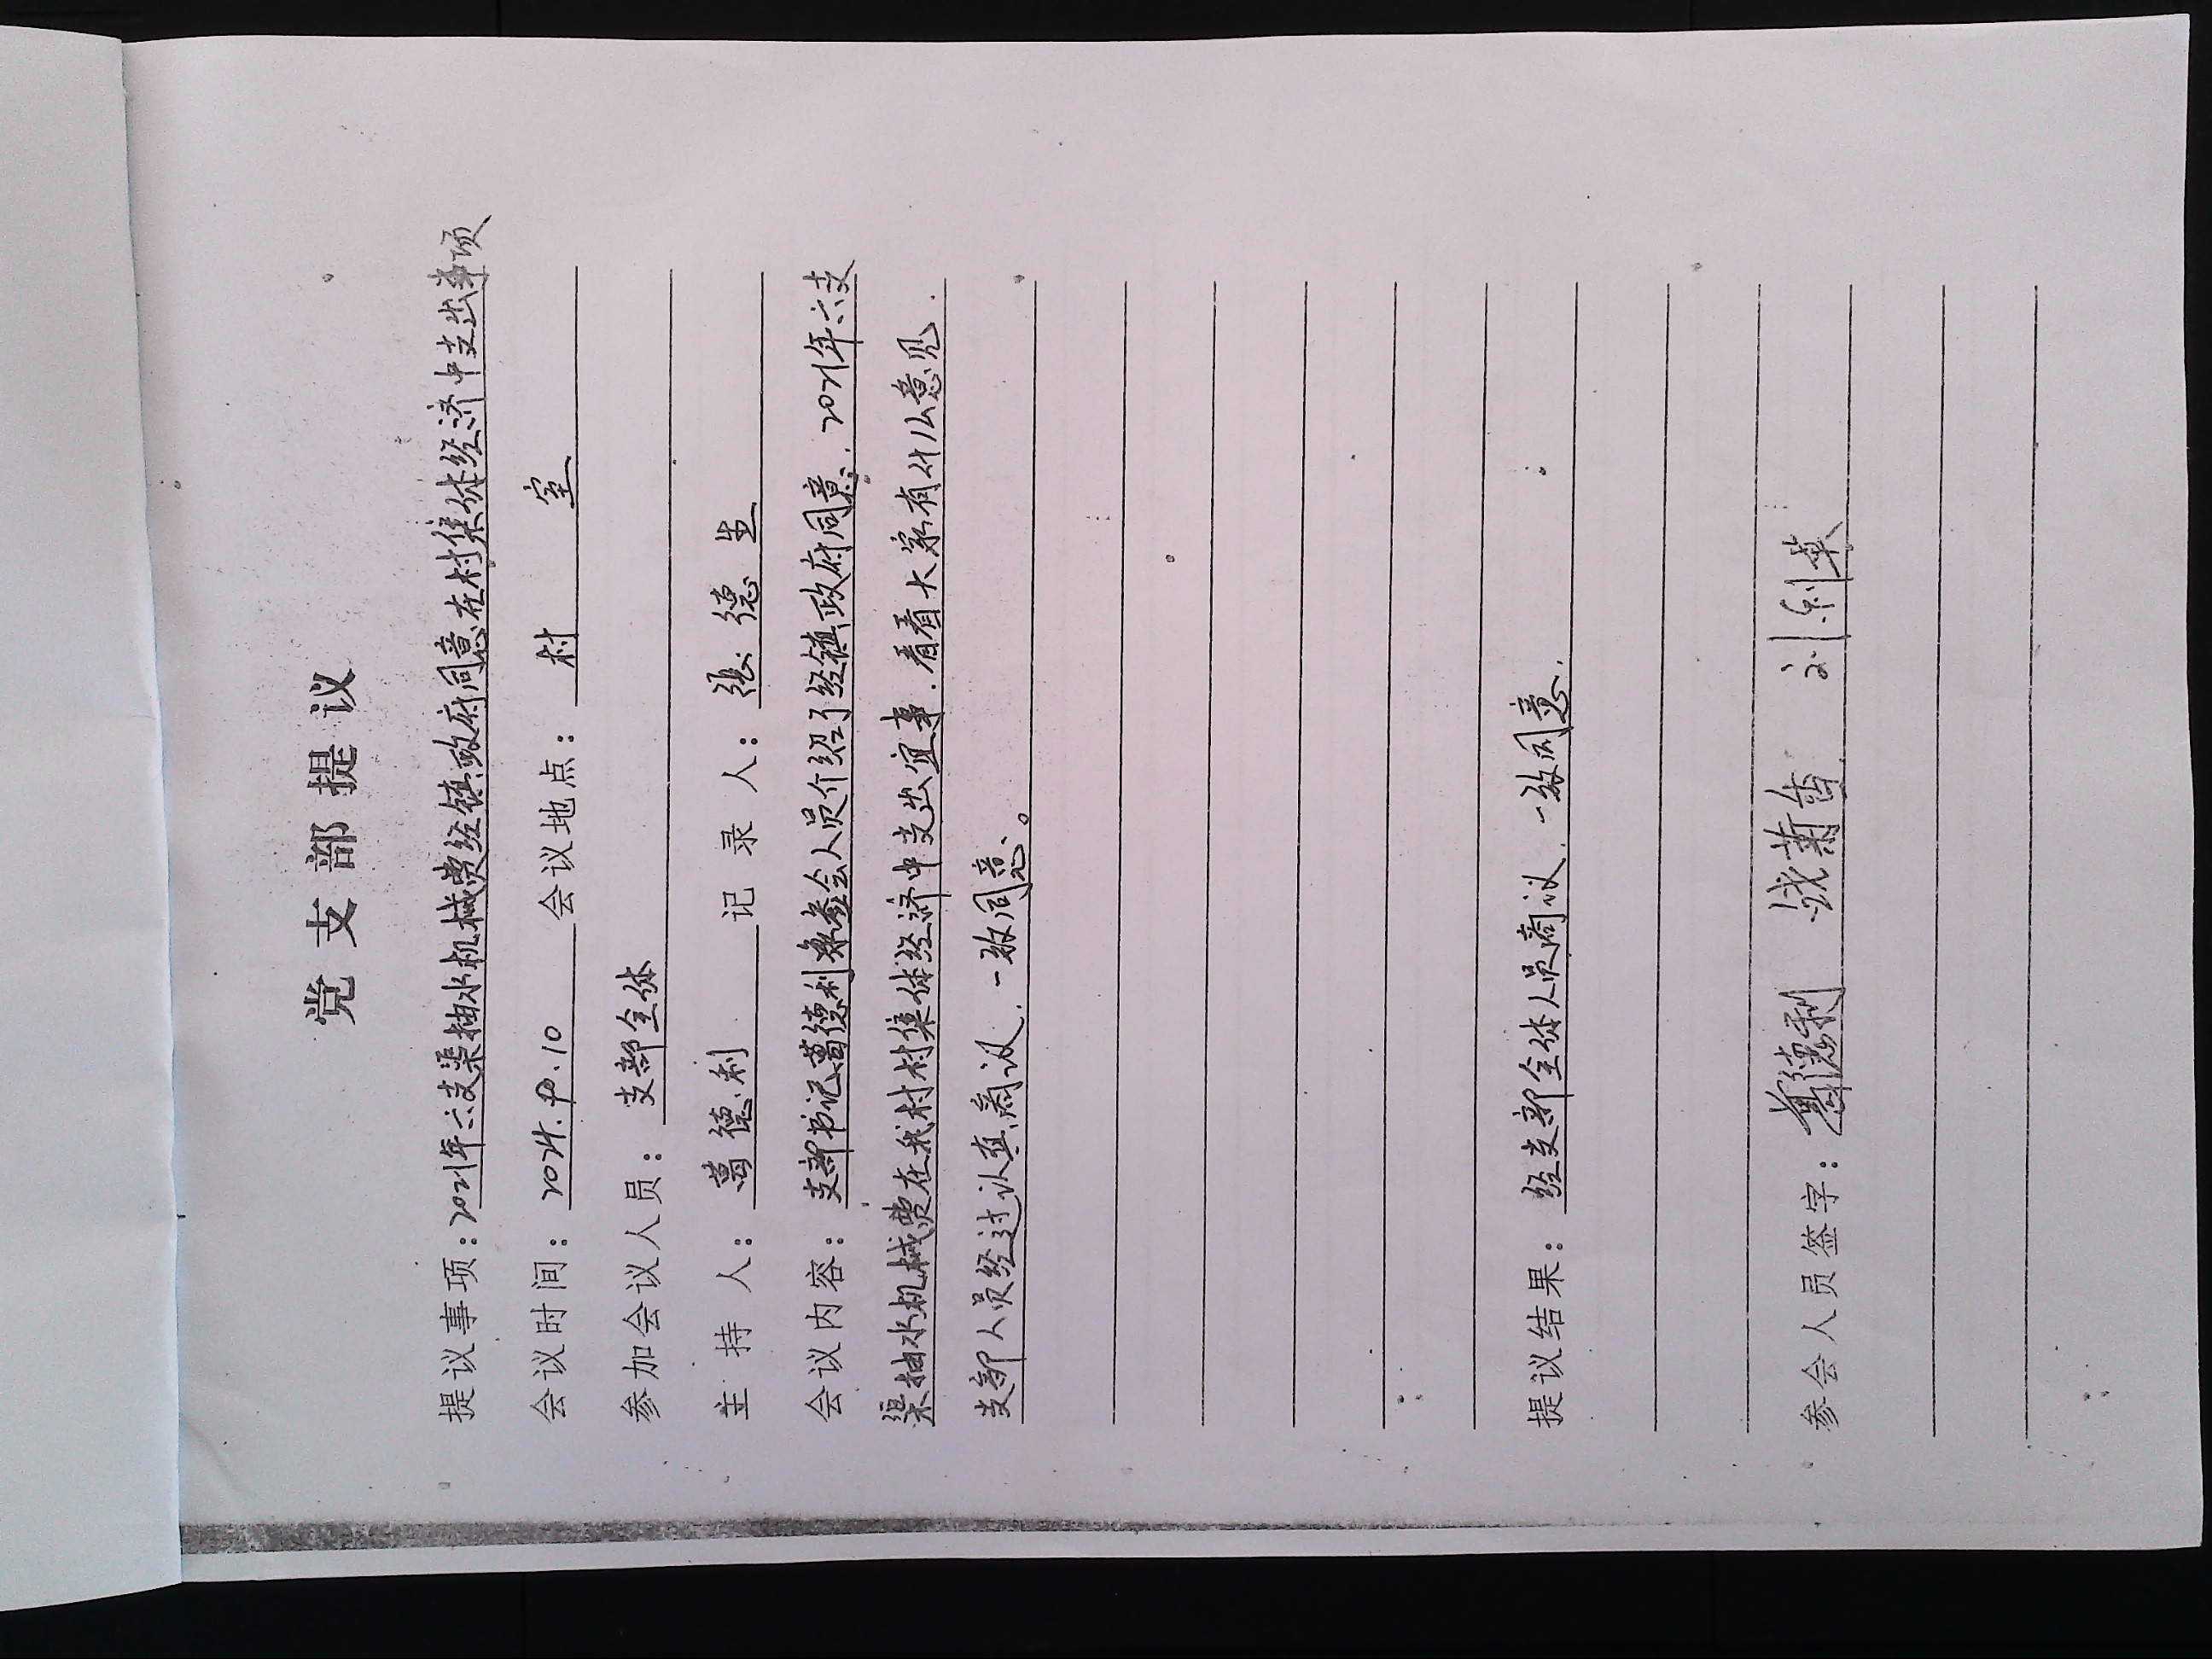 党支部提议
提议事项：2021年六支渠抽水机械费经镇政府同意在村集体经济中支出事项
会议时间：10 会议地点：村室
参加会议人员：支部全体
主持人：葛德利 记录人：张德生
会议内容：支部书记葛德利向参会人员介绍了经镇政府同意，2021年六支
渠抽水机械费在我村村集体经济中支出宜事，看看大家有什么意见.
支部人员经过认真商议，一致同意。
提议结果：经支部全体人员商议，一致同意.
参会人员签字：葛德利